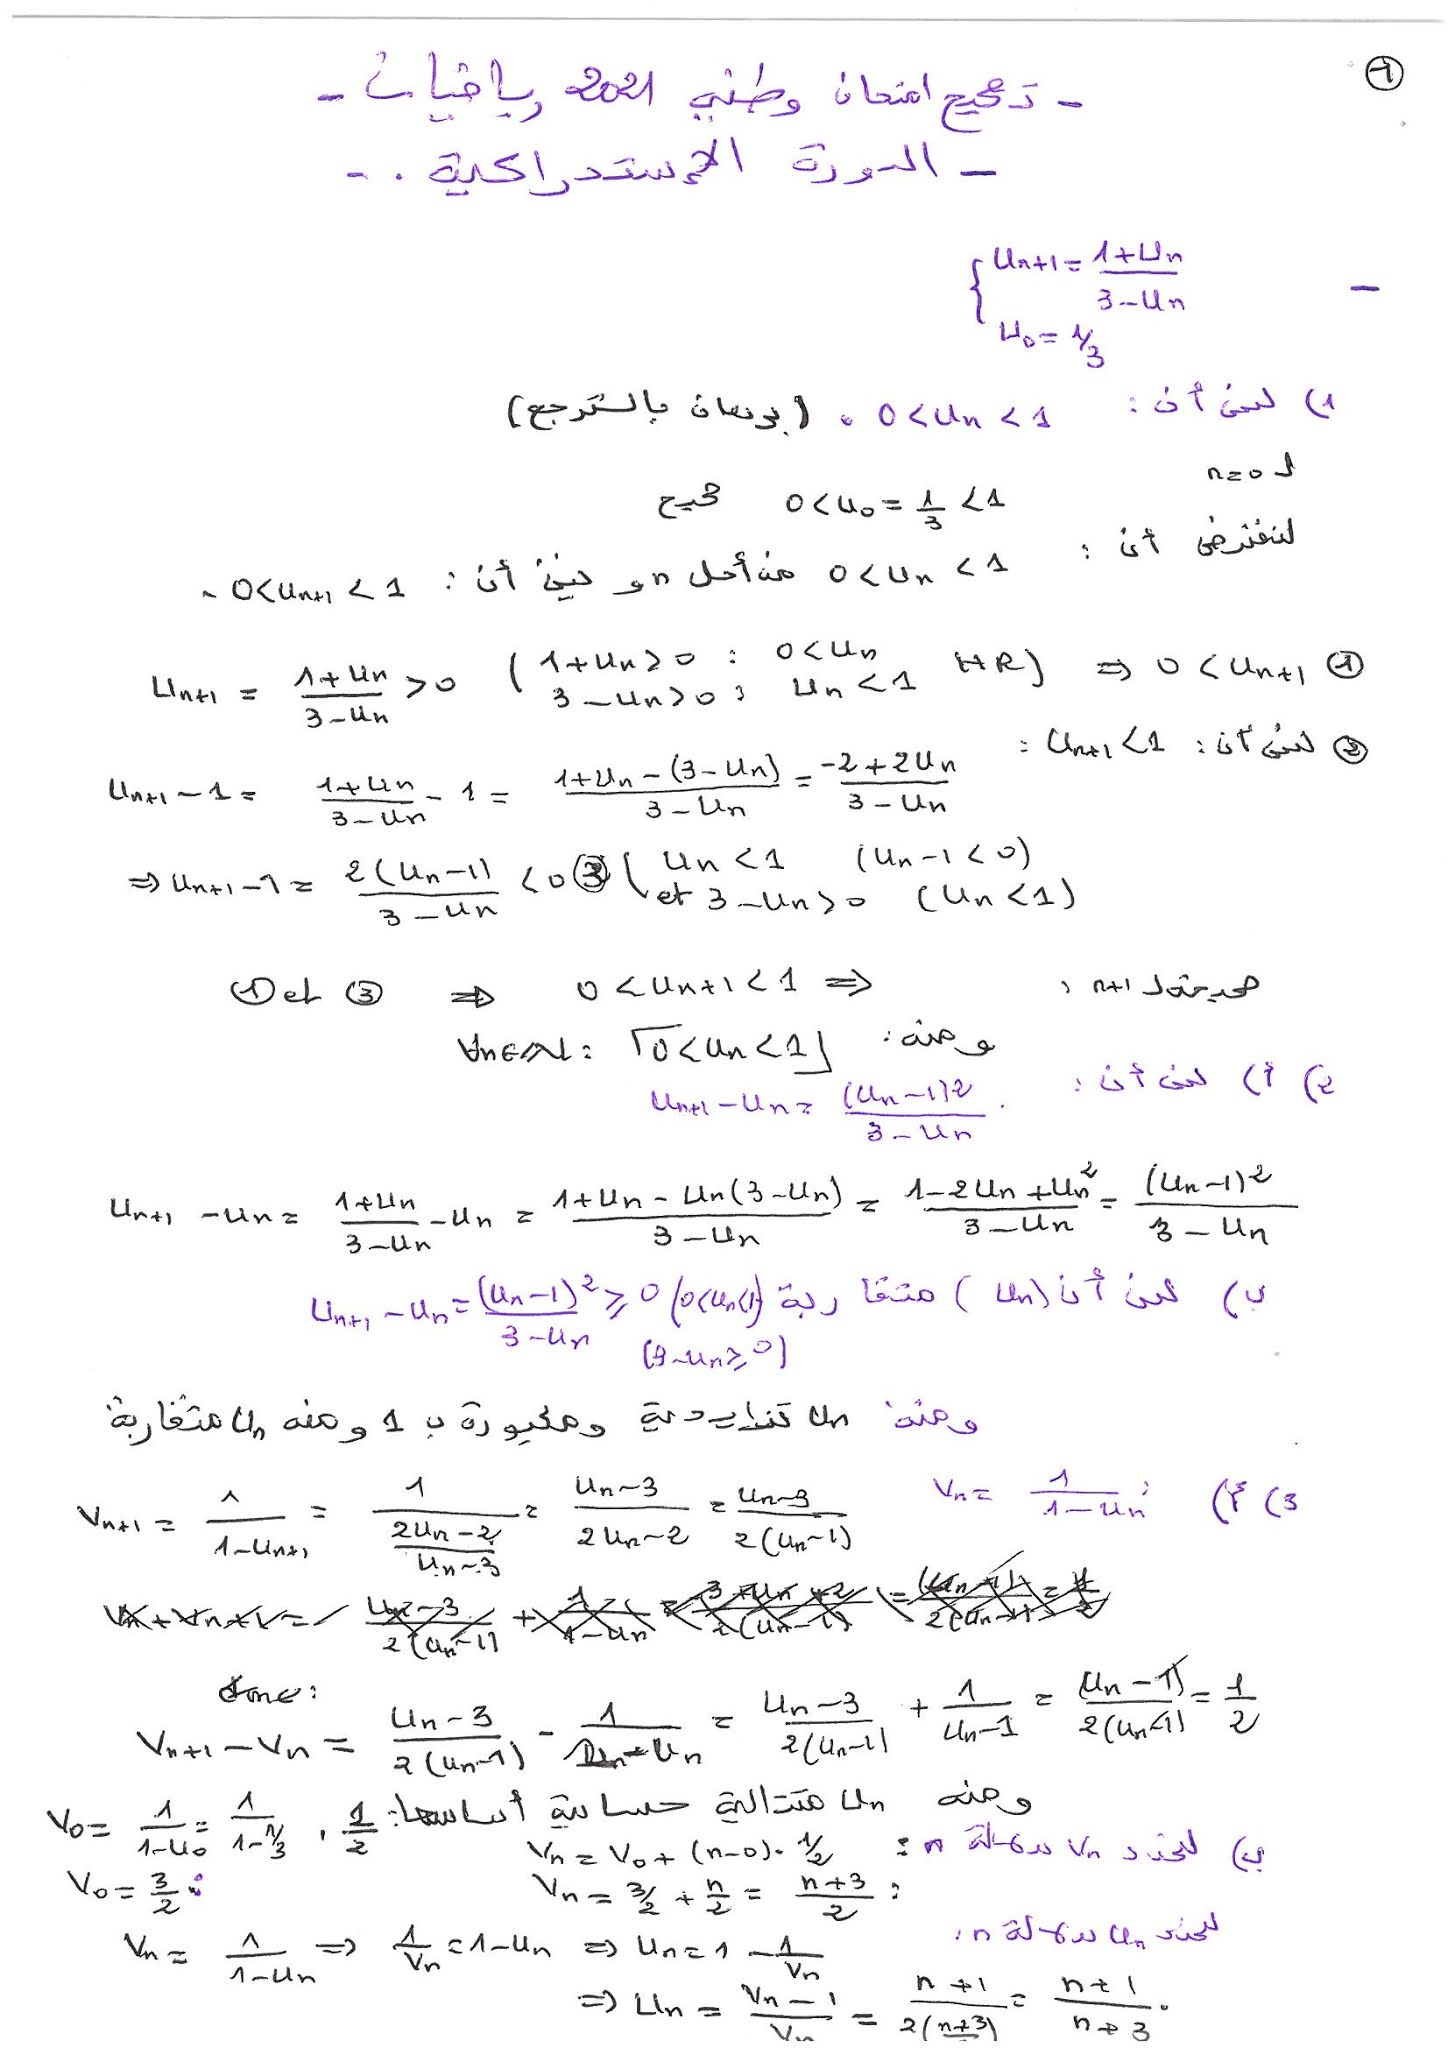 ①
- تصحيح امتحان وطني 2021 رياضيات -
- الدورة الاستدراكية . -
- { Un+1 = (1+Un)/(3-Un)
U0 = 1/3
1) لنبين أن : 0 < Un < 1 . (برهان بالترجع)
ل n=0
0 < U0 = 1/3 < 1 صحيح
لنفترض أن :
0 < Un < 1 من أجل n و نبين أن : 0 < Un+1 < 1 .
Un+1 = (1+Un)/(3-Un) > 0 ( 1+Un > 0 : 0 < Un
3-Un > 0 : Un < 1 HR) ⇒ 0 < Un+1 ①
② لنبين أن : Un+1 < 1 :
Un+1 - 1 = (1+Un)/(3-Un) - 1 = (1+Un-(3-Un))/(3-Un) = (-2+2Un)/(3-Un)
⇒ Un+1 - 1 = 2(Un-1)/(3-Un) < 0 ③ ( Un < 1 (Un-1 < 0)
et 3-Un > 0 (Un < 1)
① et ③ ⇒ 0 < Un+1 < 1 ⇒ صحيحة ل n+1 ,
ومنه : ∀n∈ℕ : 0 < Un < 1
2) أ) لنبين أن :
Un+1 - Un = (Un-1)2/(3-Un) .
Un+1 - Un = (1+Un)/(3-Un) - Un = (1+Un-Un(3-Un))/(3-Un) = (1-2Un+Un²)/(3-Un) = (Un-1)²/(3-Un)
ب) لنبين أن (Un) متقاربة Un+1 - Un = (Un-1)²/(3-Un) ≥ 0 (0<Un<1)
(3-Un ≥ 0)
ومنه Un تزايدية ومكبورة ب 1 ومنه Un متقاربة
3) أ) Vn = 1/(1-Un) :
Vn+1 = 1/(1-Un+1) = 1/((2Un-2)/(Un-3)) = (Un-3)/(2Un-2) = (Un-3)/(2(Un-1))
donc :
Vn+1 - Vn = (Un-3)/(2(Un-1)) - 1/(1-Un) = (Un-3)/(2(Un-1)) + 1/(Un-1) = (Un-1)/(2(Un-1)) = 1/2
ومنه Un متتالية حسابية أساسها : 1/2 .
V0 = 1/(1-U0) = 1/(1-1/3)
V0 = 3/2 :
ب) لنحدد Vn بدلالة n :
Vn = V0 + (n-0) . 1/2
Vn = 3/2 + n/2 = (n+3)/2 :
لنحدد Un بدلالة n :
Vn = 1/(1-Un) ⇒ 1/Vn = 1-Un ⇒ Un = 1 - 1/Vn
⇒ Un = (Vn-1)/Vn = (n+1)/(2(n+3)) = (n+1)/(n+3) .